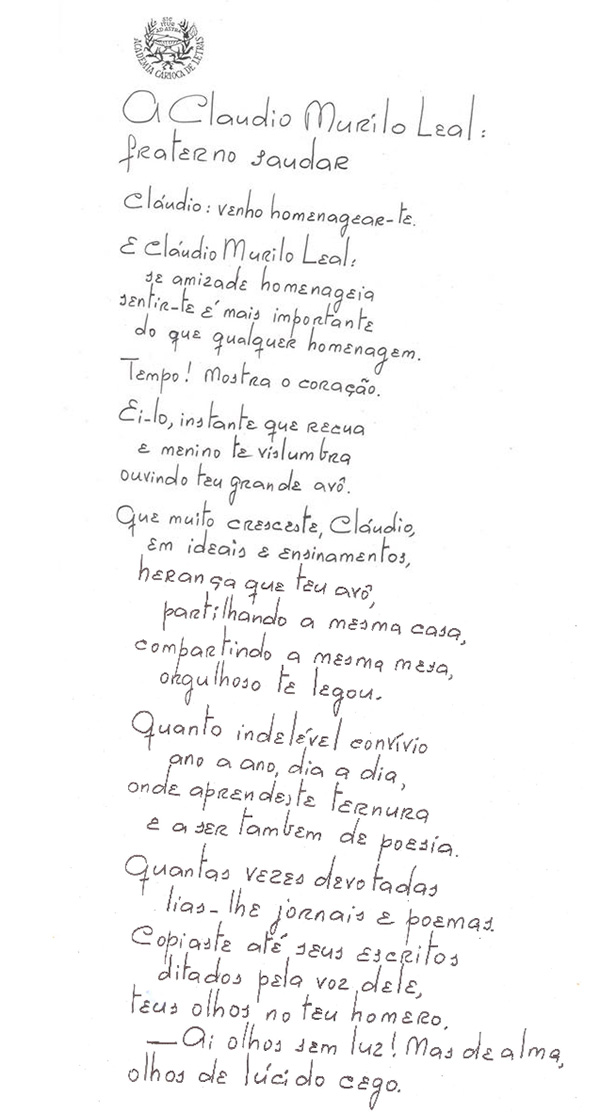 SIC
ITUR
AD ASTRA
ACADEMIA CARIOCA DE LETRAS
A Claudio Murilo Leal:
fraterno saudar
Cláudio: venho homenagear-te.
E Cláudio Murilo Leal:
se amizade homenageia
sentir-te é mais importante
do que qualquer homenagem.
Tempo! Mostra o coração.
Ei-lo, instante que recua
e menino te vislumbra
ouvindo teu grande avô.
Que muito cresceste, Cláudio,
em ideais e ensinamentos,
herança que teu avô,
partilhando a mesma casa,
compartindo a mesma mesa,
orgulhoso te legou.
Quanto indelével convívio
ano a ano, dia a dia,
onde aprendeste ternura
e a ser tambem de poesia.
Quantas vezes devotadas
lias-lhe jornais e poemas.
Copiaste até seus escritos
ditados pela voz dele,
teus olhos no teu homero.
— Ai olhos sem luz! Mas de alma,
olhos de lúcido cego.